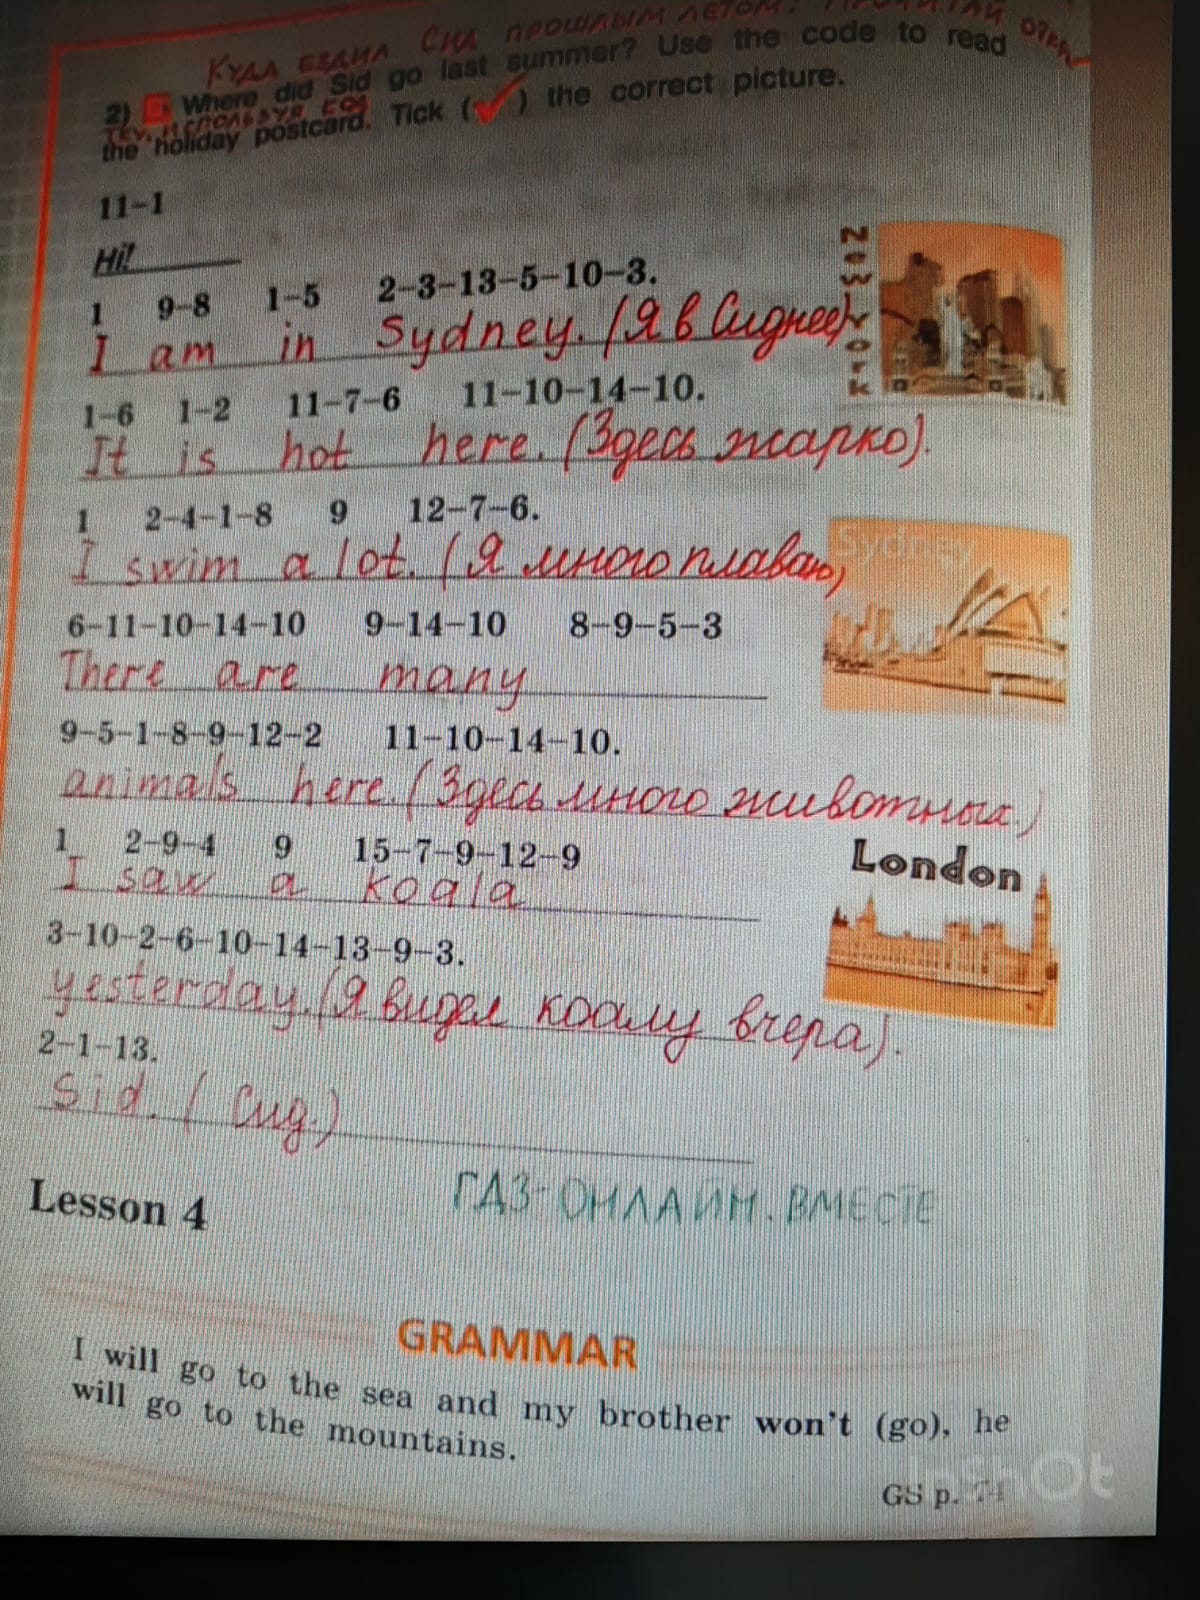 Куда ездил Сид прошлым летом? Прочитай
2) Where did Sid go last summer? Use the code to read
используя код
the holiday postcard. Tick (✓) the correct picture.
11–1
Hi!
1 9–8 1–5 2–3–13–5–10–3.
I am in Sydney. (Я в Сиднее)
New York
1–6 1–2 11–7–6 11–10–14–10.
It is hot here. (Здесь жарко).
1 2–4–1–8 9 12–7–6.
I swim a lot. (Я много плаваю)
Sydney
6–11–10–14–10 9–14–10 8–9–5–3
There are many
9–5–1–8–9–12–2 11–10–14–10.
animals here. (Здесь много животных.)
1 2–9–4 9 15–7–9–12–9
I saw a koala
London
3–10–2–6–10–14–13–9–3.
yesterday. (Я видел коалу вчера).
2–1–13.
Sid. (Сид.)
ГДЗ-ОНЛАЙН.ВМЕСТЕ
Lesson 4
GRAMMAR
I will go to the sea and my brother won't (go), he
will go to the mountains.
GS p.
InShOt